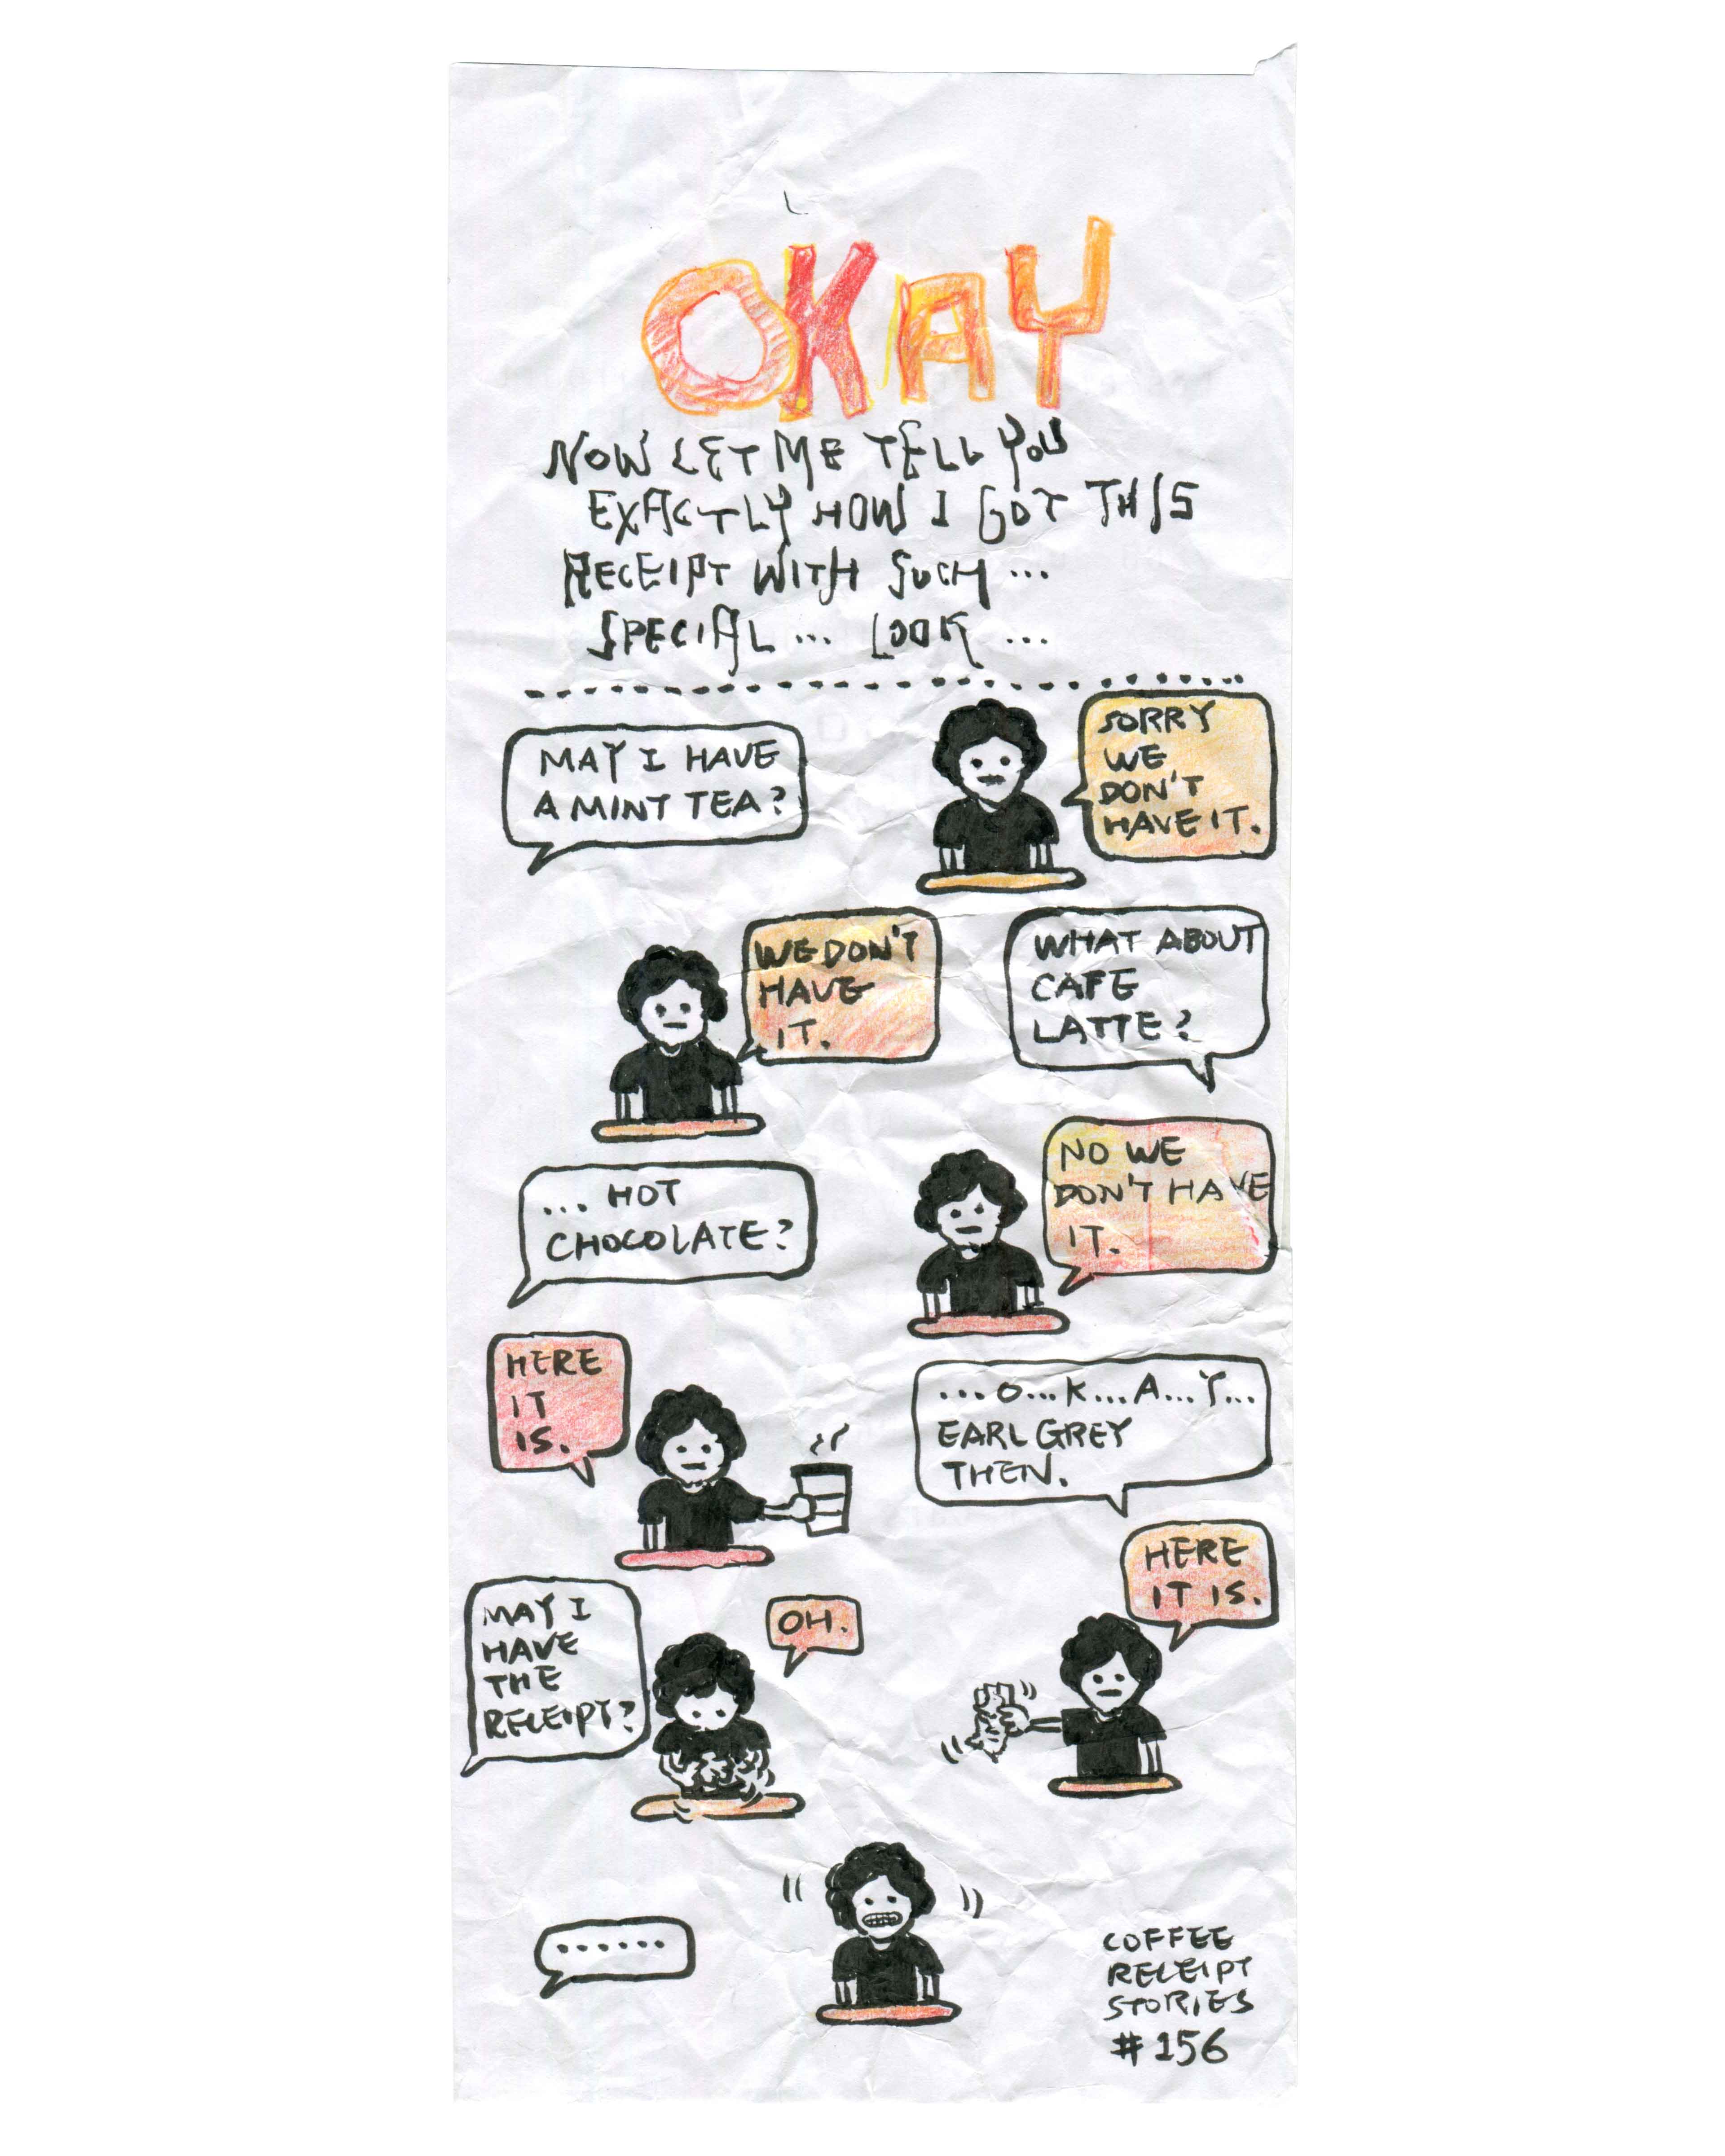 OKAY
NOW LET ME TELL YOU
EXACTLY HOW I GOT THIS
RECEIPT WITH SUCH ...
SPECIAL ... LOOK ...
MAY I HAVE
A MINT TEA?
SORRY
WE
DON'T
HAVE IT.
WHAT ABOUT
CAFE
LATTE?
WE DON'T
HAVE
IT.
... HOT
CHOCOLATE?
NO WE
DON'T HAVE
IT.
...O...K...A...Y...
EARL GREY
THEN.
HERE
IT
IS.
MAY I
HAVE
THE
RECEIPT?
OH.
HERE
IT IS.
......
COFFEE
RECEIPT
STORIES
# 156